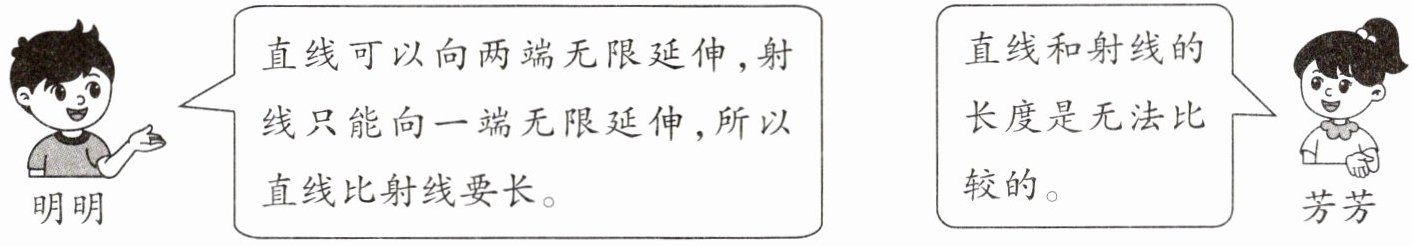 直线可以向两端无限延伸,射
线只能向一端无限延伸,所以
直线比射线要长。
明明
直线和射线的
长度是无法比
较的。
芳芳